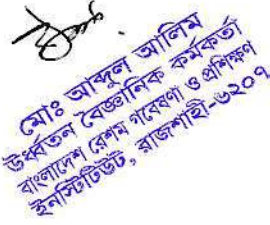 মোঃ আব্দুল আলিম
উর্ধ্বতন বৈজ্ঞানিক কর্মকর্তা
বাংলাদেশ রেশম গবেষণা ও প্রশিক্ষণ
ইনস্টিটিউট, রাজশাহী-৬২০৭